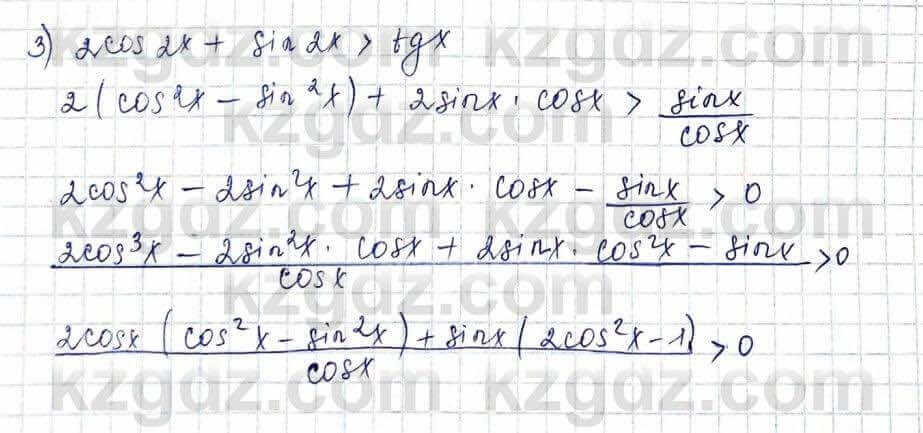 3) 2cos 2x + sin 2x > tgx
2(cos²x − sin²x) + 2sinx · cosx > sinx/cosx
2cos²x − 2sin²x + 2sinx · cosx − sinx/cosx > 0
(2cos³x − 2sin²x · cosx + 2sinx · cos²x − sinx)/cosx > 0
(2cosx (cos²x − sin²x) + sinx (2cos²x − 1))/cosx > 0
kzgdz.com
kzgdz.com
kzgdz.com
kzgdz.com
kzgdz.com
kzgdz.com
kzgdz.com
kzgdz.com